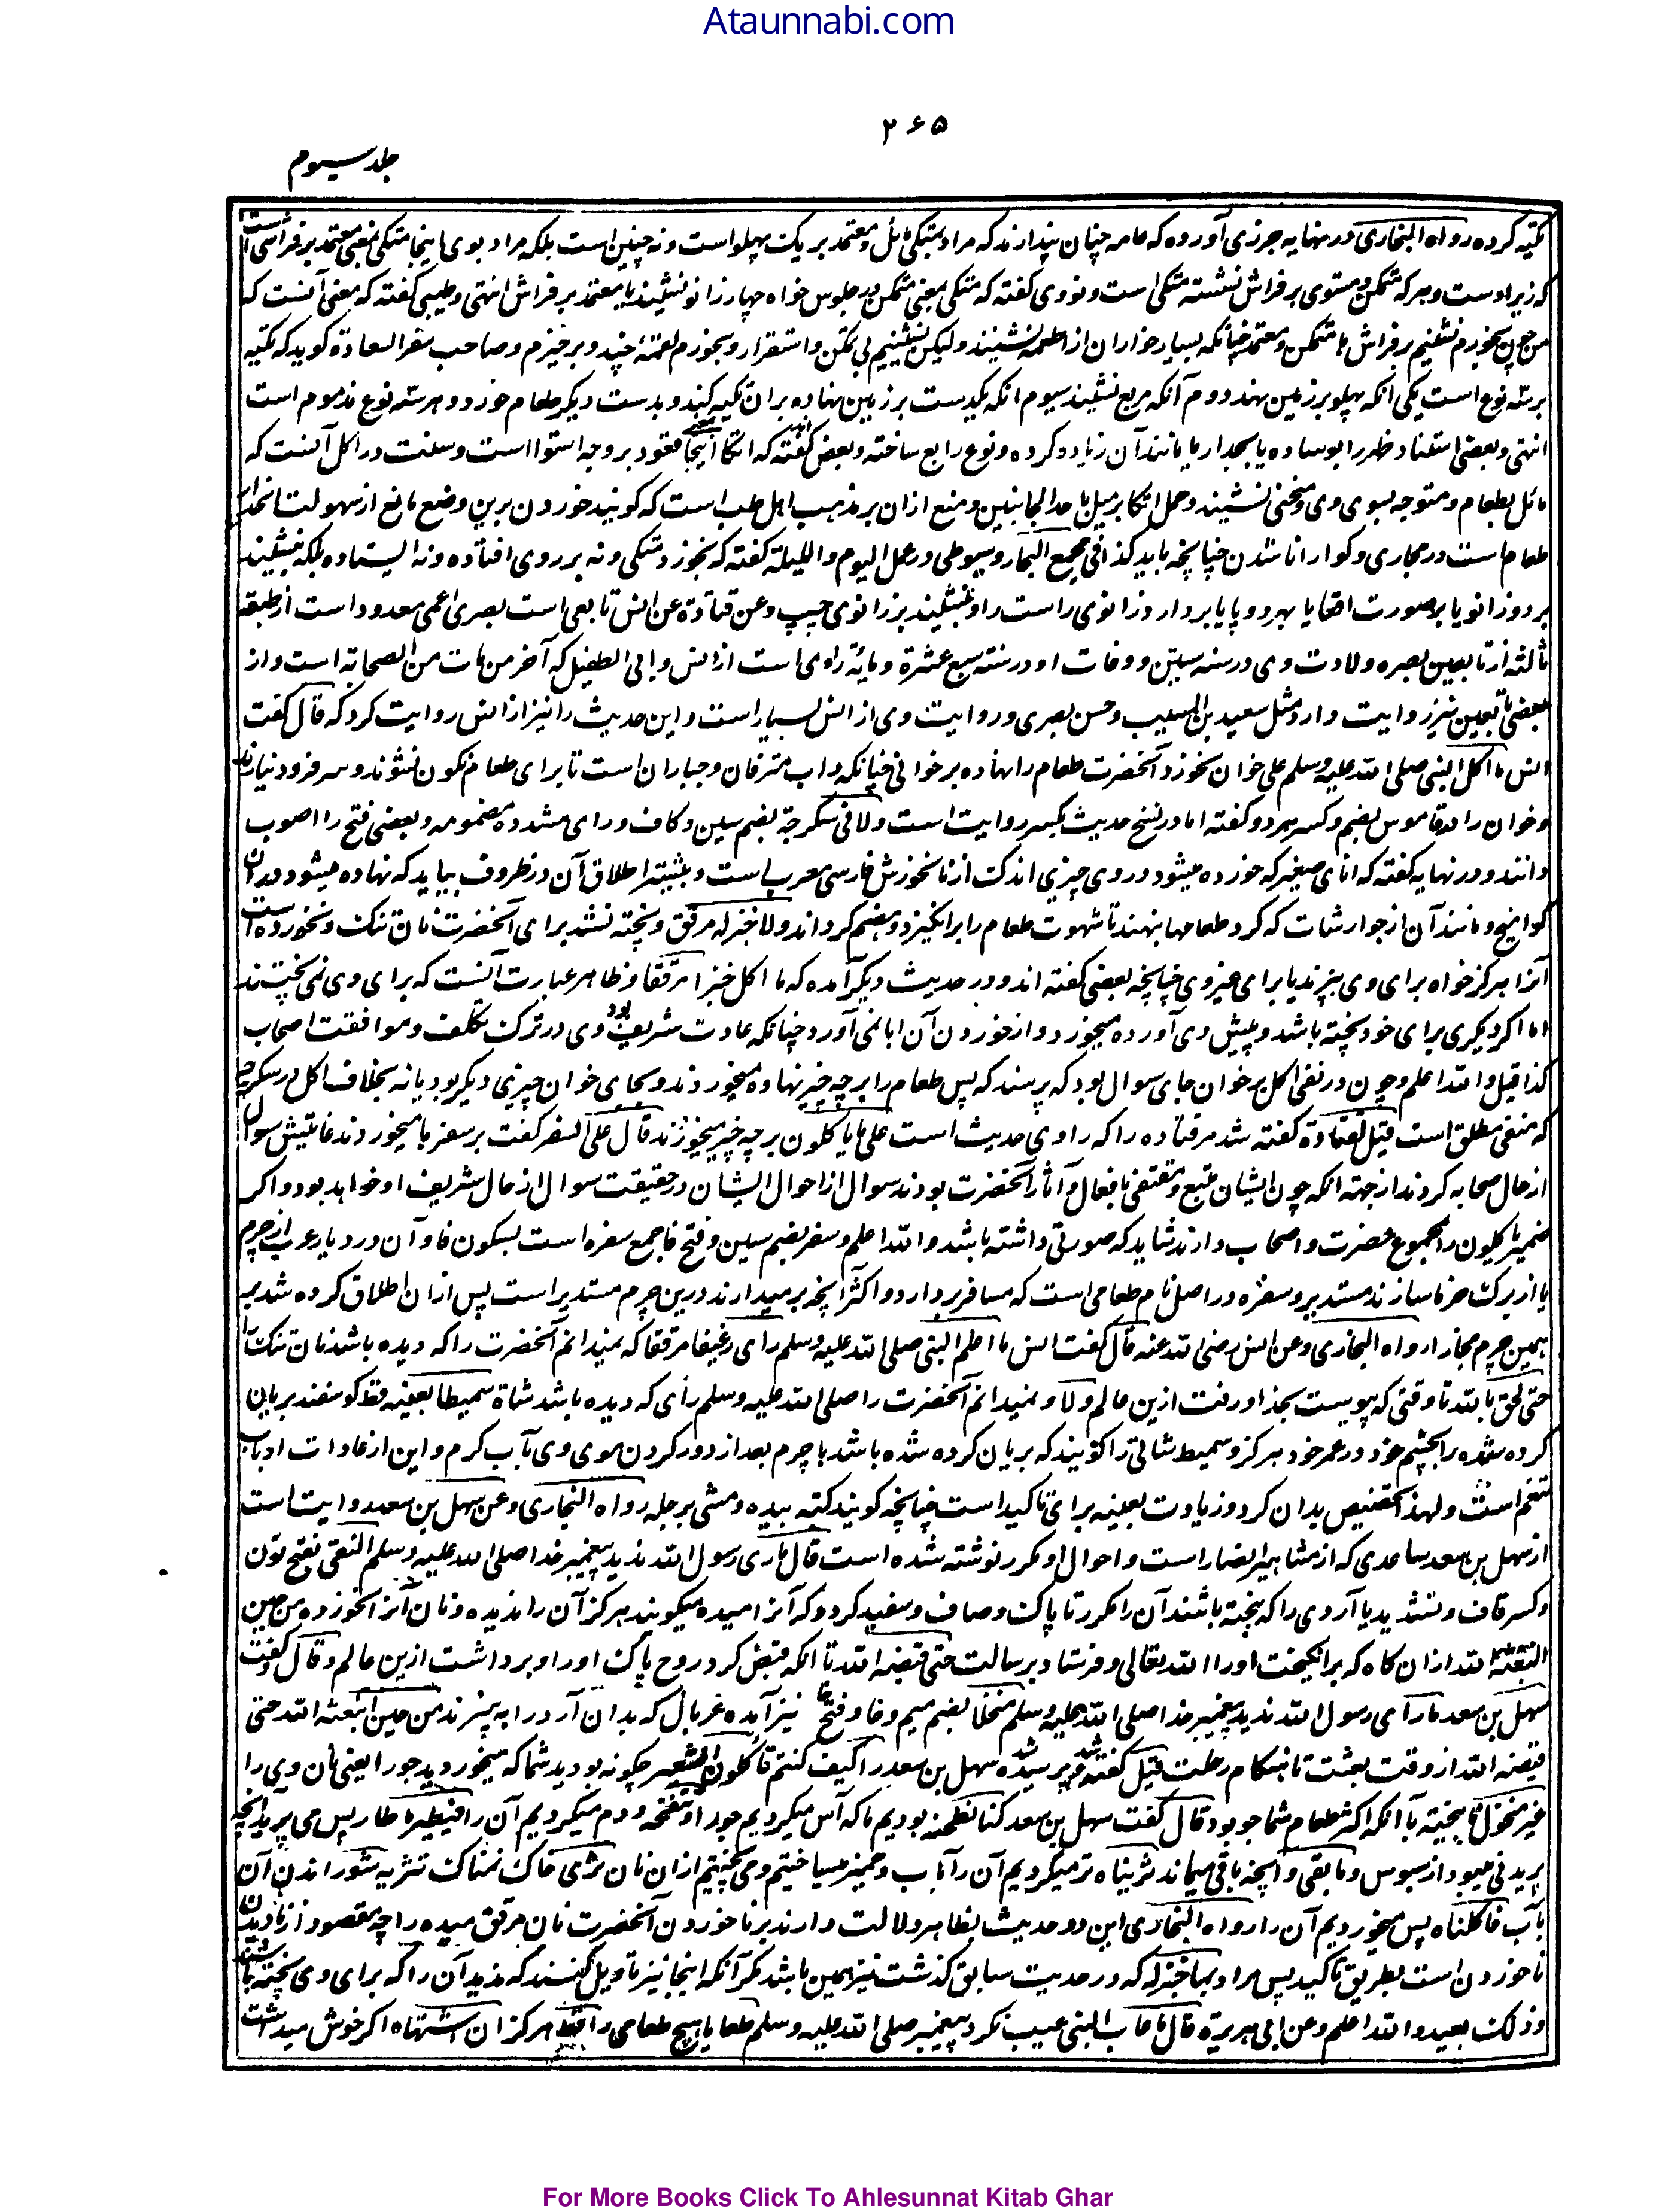 Ataunnabi.com
۲۶۵
جلد سیوم
تکیه کرده رواه البخاری در نهایه جزری آورده که عامه چنان پندارند که مراد بمتکی مائل و معتمد بر یک پهلو است و نه چنین است بلکه مراد بوی اینجا متکی بمعنی معتمد بر فراشی است
که زیر اوست و هر که متمکن و مستوی بر فراش نشسته متکی است و نووی گفته که متکی بمعنی متمکن در جلوس خواه چهار زانو نشیند یا معتمد بر فراش انتهی و طیبی گفته که معنی آنست که
من چون بخورم نشینم بر فراش با متمکن و معتمد چنانکه بسیار خواران از اطعمه نشینند ولیکن بنشینم بی تمکن و استقرار و بخورم لقمهٔ چند و برخیزم و صاحب سفر السعادة گوید که تکیه
بر سه نوع است یکی آنکه پهلو بر زمین نهند دوم آنکه مربع نشیند سیوم آنکه یکدست بر زمین نهاده بران تکیه کند و بدست دیگر طعام خورد و هر سه نوع مذموم است
انتهی و بعضی استناد ظهر را بوساده یا بجدار یا مانند آن زیاده کرده و نوع رابع ساخته و بعض گفته اند که اتکا اینجا قعود بر وجه استوا است و سنت در اکل آنست که
مائل بطعام و متوجه بسوی وی و منحنی نشیند و حمل اتکا بر میل باحد الجانبین و منع ازان بر مذهب اهل طب است که گویند خوردن برین وضع مانع از سهولت انحدار
طعام است در مجاری و گوارا نا شدن چنانچه باید کذا فی مجمع البحار و سیوطی در عمل الیوم واللیلة گفته که نخورد متکی و نه بر روی افتاده و نه ایستاده بلکه بنشیند
بر دو زانو یا بر صورت اقعا یا بهر دو پا یا بردارد زانوی راست را و بنشیند بر زانوی چپ و عن قتادة عن انس تابعی است بصری اعمی معدود است از طبقه
ثالثه از تابعین بصره ولادت وی در سنه ستین و وفات او در سنه سبع عشرة و مائة راوی است از انس و ابی الطفیل که آخر من مات من الصحابة است و از
بعضی تابعین نیز روایت دارد مثل سعید بن المسیب و حسن بصری و روایت وی از انس بسیار است و این حدیث را نیز از انس روایت کرد که قال گفت
انس ما اکل النبی صلی الله علیه وسلم علی خوان نخورد آنحضرت طعام را نهاده بر خوانی چنانکه داب مترفان و جباران است تا برای طعام نگون نشوند و سر فرود نیارند
و خوان را در قاموس بضم و کسر هر دو گفته اما در نسخ حدیث بکسر روایت است ولا فی سکرجة بضم سین و کاف و رای مشدده مضمومه و بعضی فتح را اصوب
دانند و در نهایه گفته که انای صغیر که خورده میشود در وی چیزی اندک از نانخورش فارسی معرب است و بیشتر اطلاق آن در ظروف بیاید که نهاده میشود دران
کوامیخ و مانند آن از جوارشات که گرد طعامها بنهند تا شهوت طعام را برانگیزد و هضم گرداند ولا خبز له مرقق و پخته نشد برای آنحضرت نان تنک و نخورده است
آنرا هرگز خواه برای وی بپزند یا برای غیر وی چنانچه بعضی گفته اند و در حدیث دیگر آمده که ما اکل خبزا مرققا و ظاهر عبارت آنست که برای وی نمی پختند
اما اگر دیگری برای خود پخته باشد و پیش وی آورده میخورد و از خوردن آن ابا نمی آورد چنانکه عادت شریف وی بود در ترک تکلف و موافقت اصحاب
کذا قیل والله اعلم و چون در نفی اکل بر خوان جای سوال بود که پرسند که پس طعام را بر چه چیز نهاده میخوردند و بجای خوان چیزی دیگر بود یا نه بخلاف اکل در سکرجه
که منفی مطلق است قیل لقتادة گفته شد مر قتاده را که راوی حدیث است علی ما یاکلون بر چه چیز میخورند قال علی السفر گفت بر سفرها میخوردند غایتش سوال
از حال صحابه کردند از جهت آنکه چون ایشان متبع و مقتفی بافعال و آثار آنحضرت بودند سوال از احوال ایشان در حقیقت سوال از حال شریف او خواهد بود و اگر
ضمیر یاکلون را بمجموع حضرت و اصحاب دارند شاید که صورتی داشته باشد والله اعلم و سفر بضم سین و فتح فا جمع سفره است بسکون فا و آن در دیار عرب از چرم
یا از برگ خرما سازند مستدیر و سفره در اصل نام طعامی است که مسافر بردارد و اکثر آنچه بر میدارند درین چرم مستدیر است پس ازان اطلاق کرده شد بر
همین چرم مجازا رواه البخاری و عن انس رضی الله عنه قال گفت انس ما اعلم النبی صلی الله علیه وسلم رای رغیفا مرققا که نمیدانم آنحضرت را که دیده باشد نان تنک را
حتی لحق بالله تا وقتی که پیوست بخدا و رفت ازین عالم ولا و نمیدانم آنحضرت را صلی الله علیه وسلم رأی که دیده باشد شاة سمیطا بعینه قط گوسفند بریان
کرده شده را بچشم خود در عمر خود هرگز و سمیط شاتی را گویند که بریان کرده شده باشد با چرم بعد از دور کردن موی وی بآب گرم و این از عادات ارباب
تنعم است و لهذا تخصیص بدان کرد و زیادت بعینه برای تاکید است چنانچه گویند کتبه بیده و مشی برجله رواه البخاری و عن سهل بن سعد روایت است
از سهل بن سعد ساعدی که از مشاهیر انصار است و احوال او مکرر نوشته شده است قال ما رای رسول الله ندید پیغمبر خدا صلی الله علیه وسلم النقی بفتح نون
و کسر قاف و تشدید یا آردی را که بیخته باشند آن را مکرر تا پاک و صاف و سفید گردد که آنرا میده میگویند هرگز آن را ندیده و نان آنرا نخورده من حین
ابتعثه الله ازان گاه که برانگیخت او را الله تعالی و فرستاد برسالت حتی قبضه الله تا آنکه قبض کرد روح پاک او را و برداشت ازین عالم و قال و گفت
سهل بن سعد ما رای رسول الله ندید پیغمبر خدا صلی الله علیه وسلم منخلا بضم میم و خا و فتح خا نیز آمده غربال که بدان آرد را به بیزند من حین ابتعثه الله حتی
قبضه الله از وقت بعثت تا هنگام رحلت قیل گفته شد و پرسیده شد سهل بن سعد را کیف کنتم تاکلون الشعیر چگونه بودید شما که میخوردید جو را یعنی نان وی را
غیر منخول نا بیخته با آنکه اکثر طعام شما جو بود قال گفت سهل بن سعد کنا نطحنه بودیم ما که آس میکردیم جو را و ننفخه و دم میکردیم آن را فیطیر ما طار پس می پرید آنچه
پریدنی میبود از سبوس و ما بقی و آنچه باقی میماند ثریناه تر میکردیم آن را بآب و خمیر میساختیم و می پختیم ازان نان ثری خاک نمناک تثریه شوراندن آن
بآب فاکلناه پس میخوردیم آن را رواه البخاری این دو حدیث بظاهر دلالت دارند بر ناخوردن آنحضرت نان مرقق میده را چه مقصود از نادیدن
ناخوردن است بطریق تاکید پس مراد بما خبز له که در حدیث سابق گذشت نیز همین باشد مگر آنکه اینجا نیز تاویل کنند که ندید آن را که برای وی پخته باشند
وذلک بعید والله اعلم و عن ابی هریرة قال ما عاب النبی عیب نکرد پیغمبر صلی الله علیه وسلم طعاما هیچ طعامی را قط هرگز ان اشتهاه اگر خوش میداشت
For More Books Click To Ahlesunnat Kitab Ghar